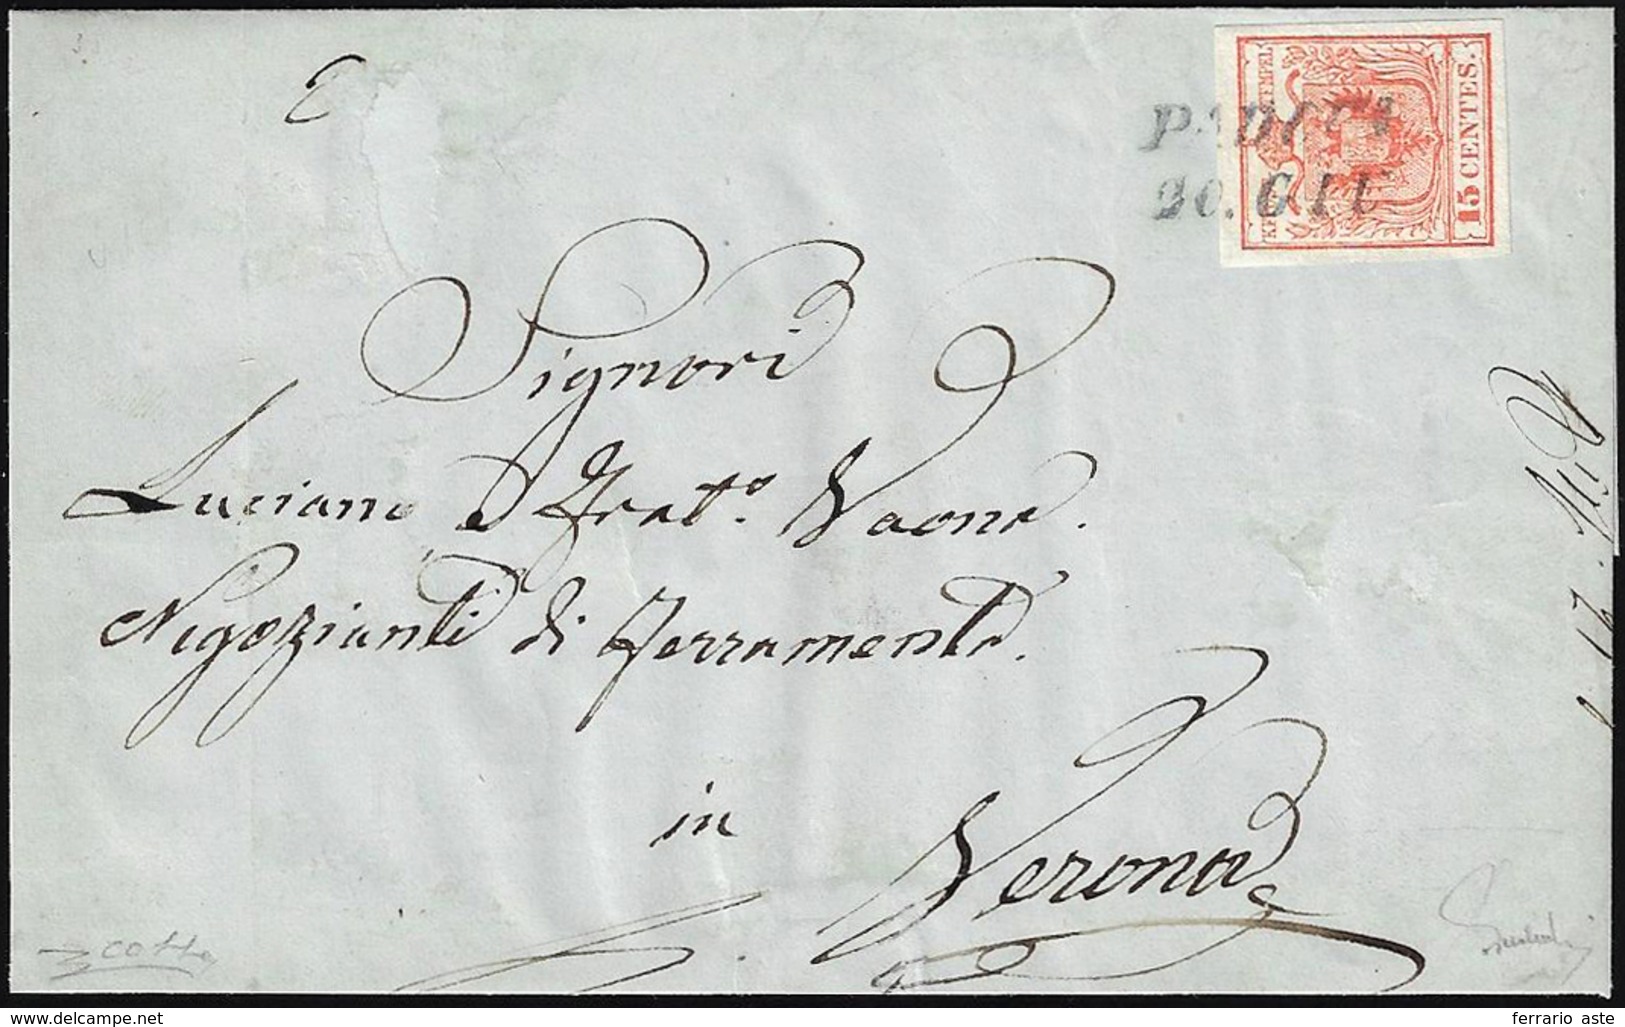 KK
STEMPEL
15 CENTES.
PADOVA
20. GIU
Signori
Luciano e Frat.º Vaona.
Negozianti di Ferramenta.
in
Verona
www.delcampe.net
ferrario aste